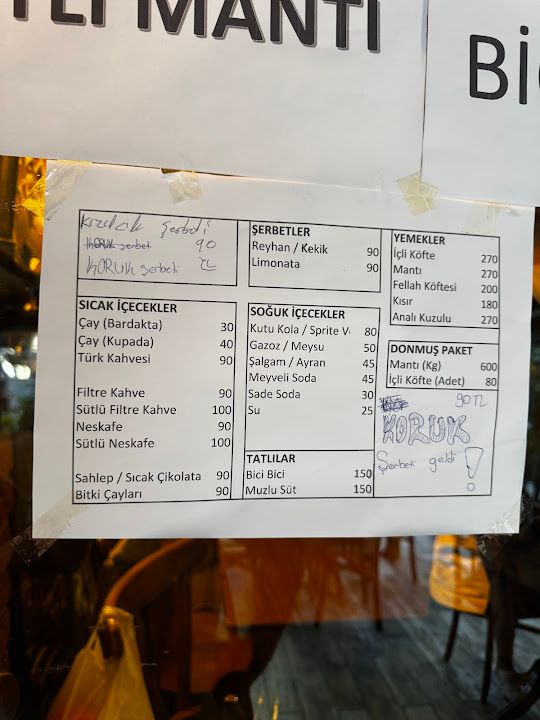 TLI MANTI
BİC
Kızılcık şerbeti
KORUK şerbet 90
KORUK şerbeti TL
ŞERBETLER
Reyhan / Kekik 90
Limonata 90
YEMEKLER
İçli Köfte 270
Mantı 270
Fellah Köftesi 200
Kısır 180
Analı Kuzulu 270
SICAK İÇECEKLER
Çay (Bardakta) 30
Çay (Kupada) 40
Türk Kahvesi 90
Filtre Kahve 90
Sütlü Filtre Kahve 100
Neskafe 90
Sütlü Neskafe 100
Sahlep / Sıcak Çikolata 90
Bitki Çayları 90
SOĞUK İÇECEKLER
Kutu Kola / Sprite V 80
Gazoz / Meysu 50
Şalgam / Ayran 45
Meyveli Soda 45
Sade Soda 30
Su 25
TATLILAR
Bici Bici 150
Muzlu Süt 150
DONMUŞ PAKET
Mantı (Kg) 600
İçli Köfte (Adet) 80
90 TL
KORUK
Şerbeti geldi !